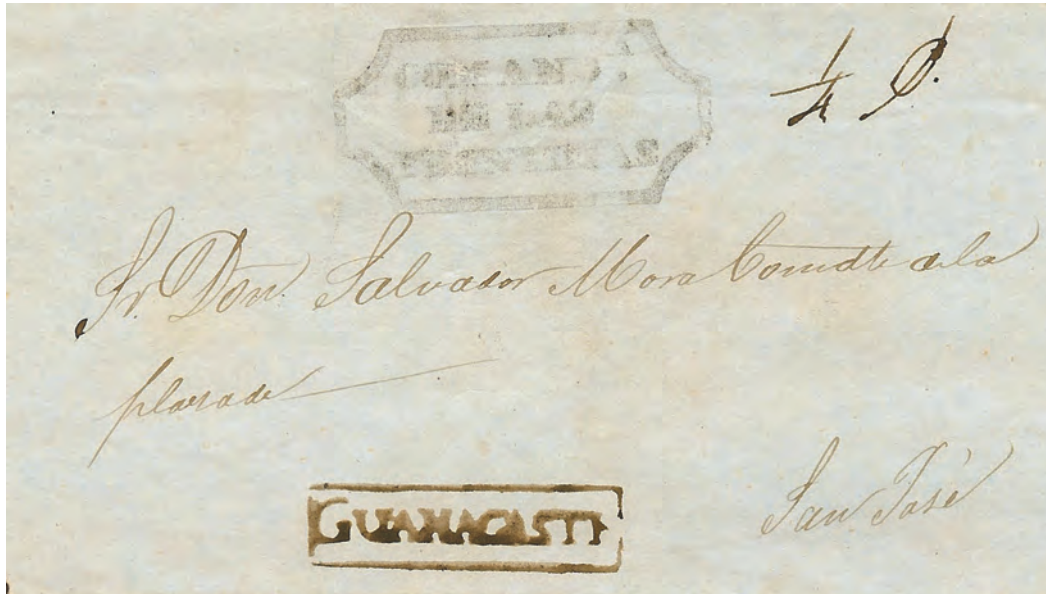 ¼ P.
Sr. Don Salvador Mora Comdte de la
plaza de
San José
GUANACASTE